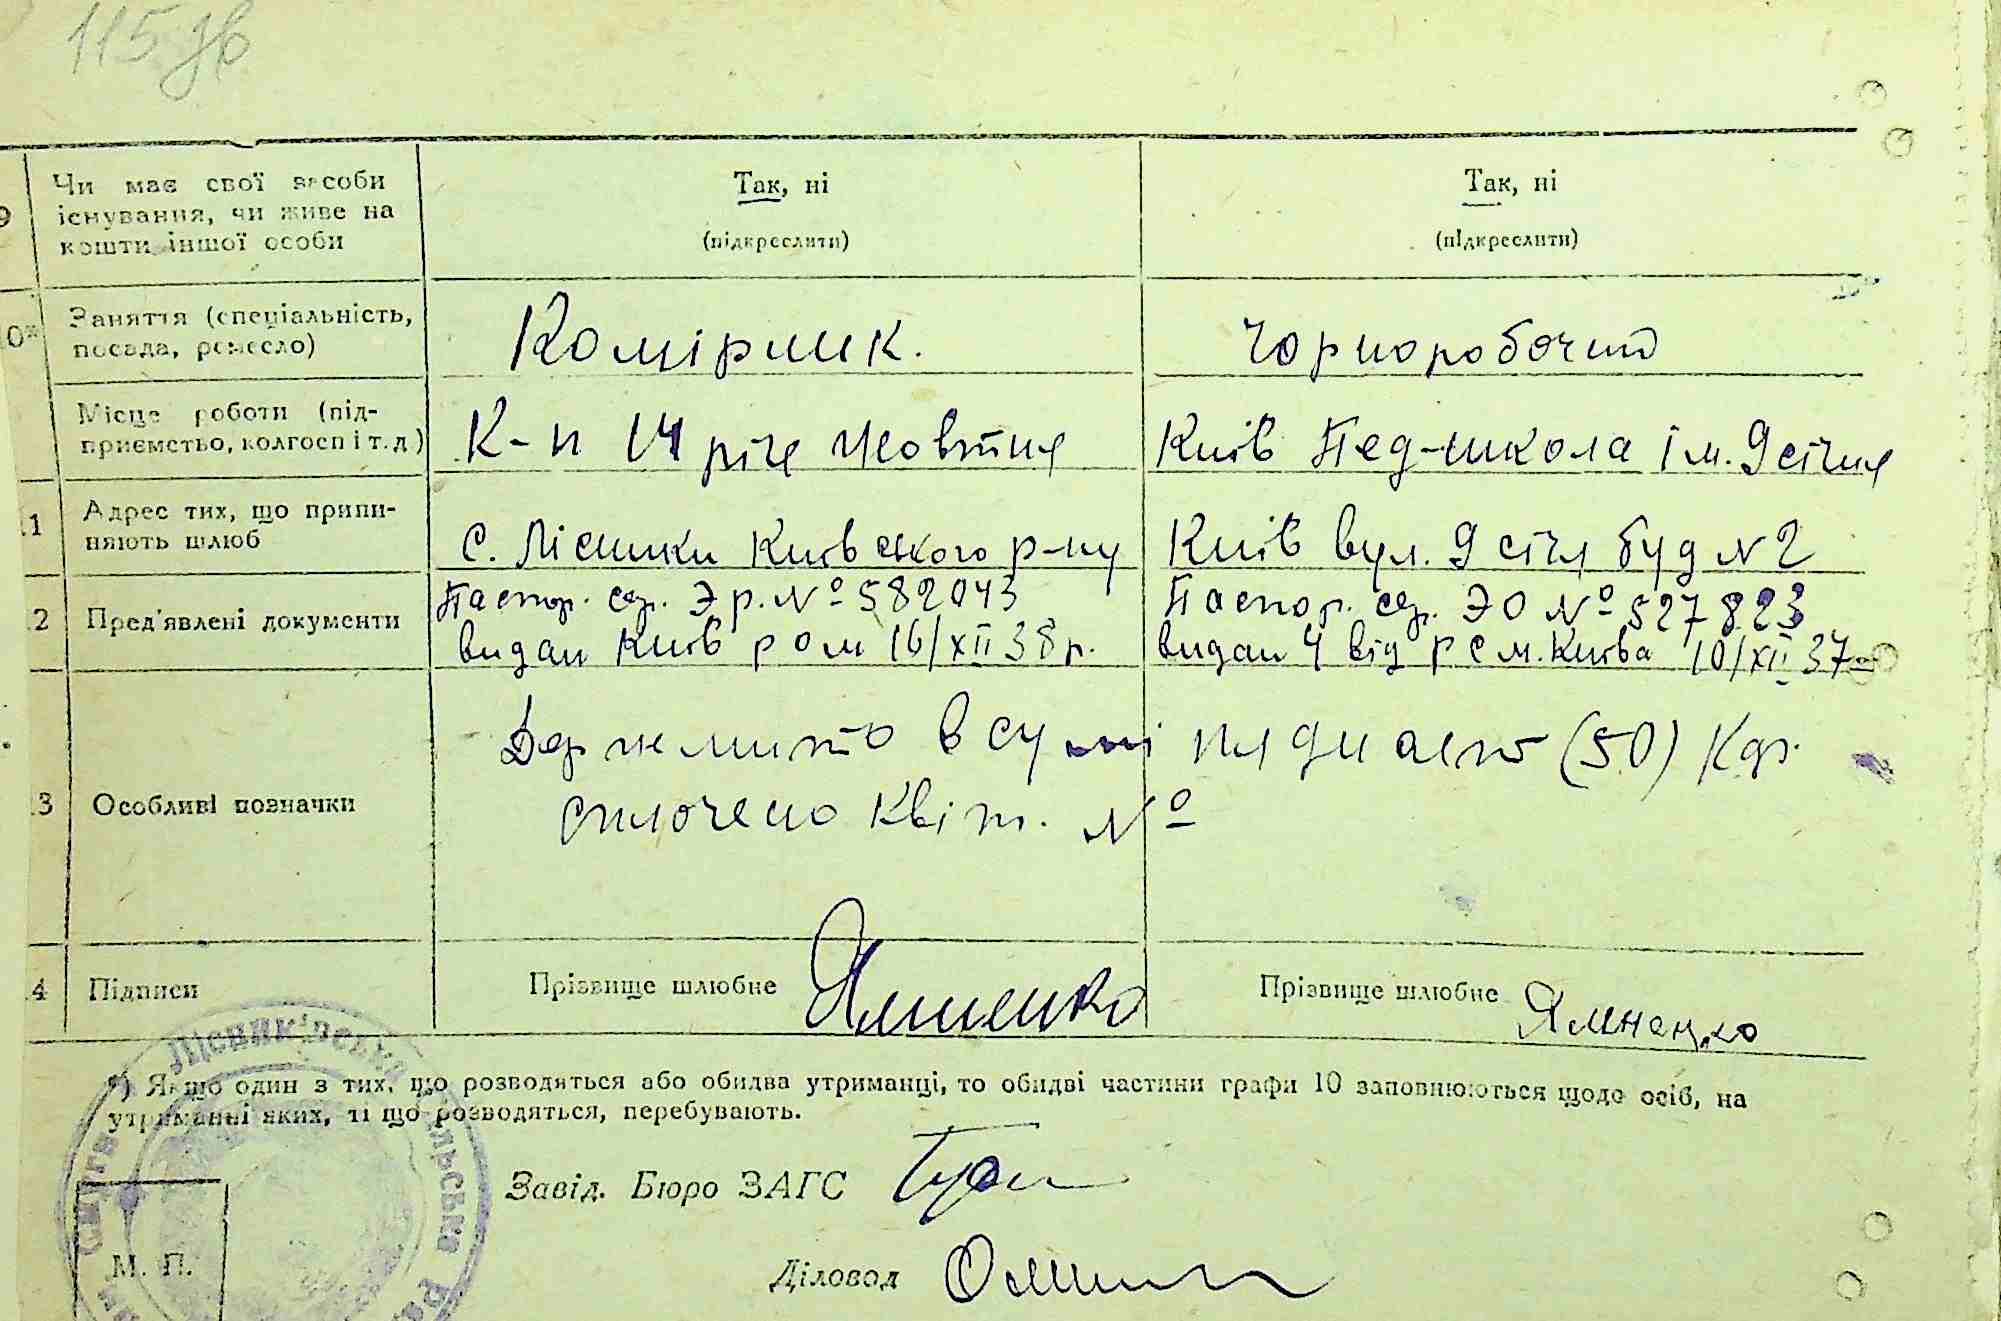 115 зв
9 Чи має свої засоби існування, чи живе на кошти іншої особи
Так, ні
(підкреслити)
Так, ні
(підкреслити)
10* Заняття (спеціальність, посада, ремесло)
Комірник.
Чорноробочий
Місце роботи (підприємстьо, колгосп і т. д)
К-п 14 річч Жовтня
Київ Пед-школа ім. 9 січня
11 Адрес тих, що припиняють шлюб
с. Лісники Київського р-ну
Київ вул. 9 січл буд N 2
12 Пред'явлені документи
Паспор. сер. Эр. № 582043
видан Київ ром 16/XII 38 р.
Паспор. сер. ЭО № 527823
видан 4 від РСМ. Київа 10/XII 37
13 Особливі позначки
Держмито в сумі пядисят (50) Крб.
сплочено квіт. №
14 Підписи
Прізвище шлюбне Ялиненко
Прізвище шлюбне Ялиненко
*) Якщо один з тих, що розводяться або обидва утриманці, то обидві частини графи 10 заповнюються щодо осіб, на
утриманні яких, ті що розводяться, перебувають.
Завід. Бюро ЗАГС
Діловод
М. П.
Лісниківська сільська Рад